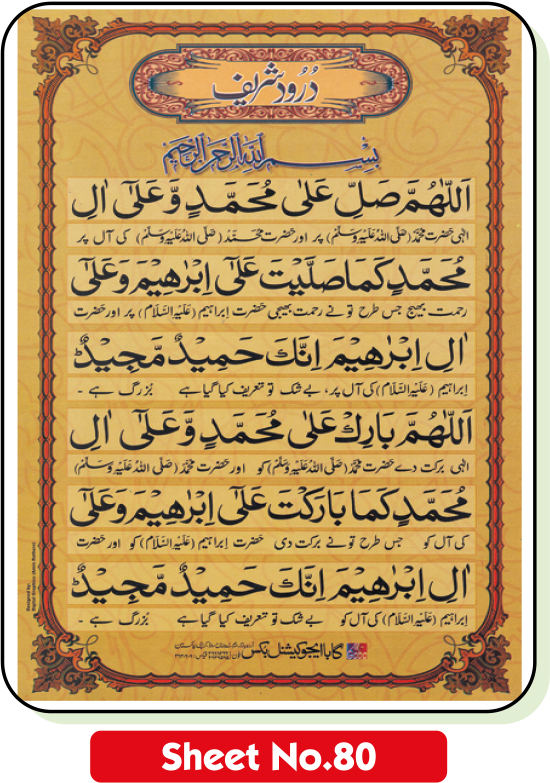 دُرُود شریف
بِسْمِ اللهِ الرَّحْمٰنِ الرَّحِيْمِ
اَللّٰهُمَّ صَلِّ عَلٰى مُحَمَّدٍ وَّعَلٰٓى اٰلِ
الٰہی حضرت محمّد (صَلَّی اللہُ عَلَیْہِ وَسَلَّمْ) پر اور حضرت محمّد (صَلَّی اللہُ عَلَیْہِ وَسَلَّمْ) کی آل پر
مُحَمَّدٍ كَمَا صَلَّيْتَ عَلٰٓى اِبْرٰهِيْمَ وَعَلٰٓى
رحمت بھیج جس طرح تونے رحمت بھیجی حضرت ابراہیم (عَلَیْہِ السَّلَام) پر اور حضرت
اٰلِ اِبْرٰهِيْمَ اِنَّكَ حَمِيْدٌ مَّجِيْدٌ
ابراہیم (عَلَیْہِ السَّلَام) کی آل پر، بے شک تو تعریف کیا گیا ہے بُزرگ ہے ۔
اَللّٰهُمَّ بَارِكْ عَلٰى مُحَمَّدٍ وَّعَلٰٓى اٰلِ
الٰہی برکت دے حضرت محمّد (صَلَّی اللہُ عَلَیْہِ وَسَلَّمْ) کو اور حضرت محمّد (صَلَّی اللہُ عَلَیْہِ وَسَلَّمْ)
مُحَمَّدٍ كَمَا بَارَكْتَ عَلٰٓى اِبْرٰهِيْمَ وَعَلٰٓى
کی آل کو جس طرح تونے برکت دی حضرت ابراہیم (عَلَیْہِ السَّلَام) کو اور حضرت
اٰلِ اِبْرٰهِيْمَ اِنَّكَ حَمِيْدٌ مَّجِيْدٌ
ابراہیم (عَلَیْہِ السَّلَام) کی آل کو بے شک تو تعریف کیا گیا ہے بُزرگ ہے ۔
گابا ایجوکیشنل بکس
Designed by:
Sheet No.80